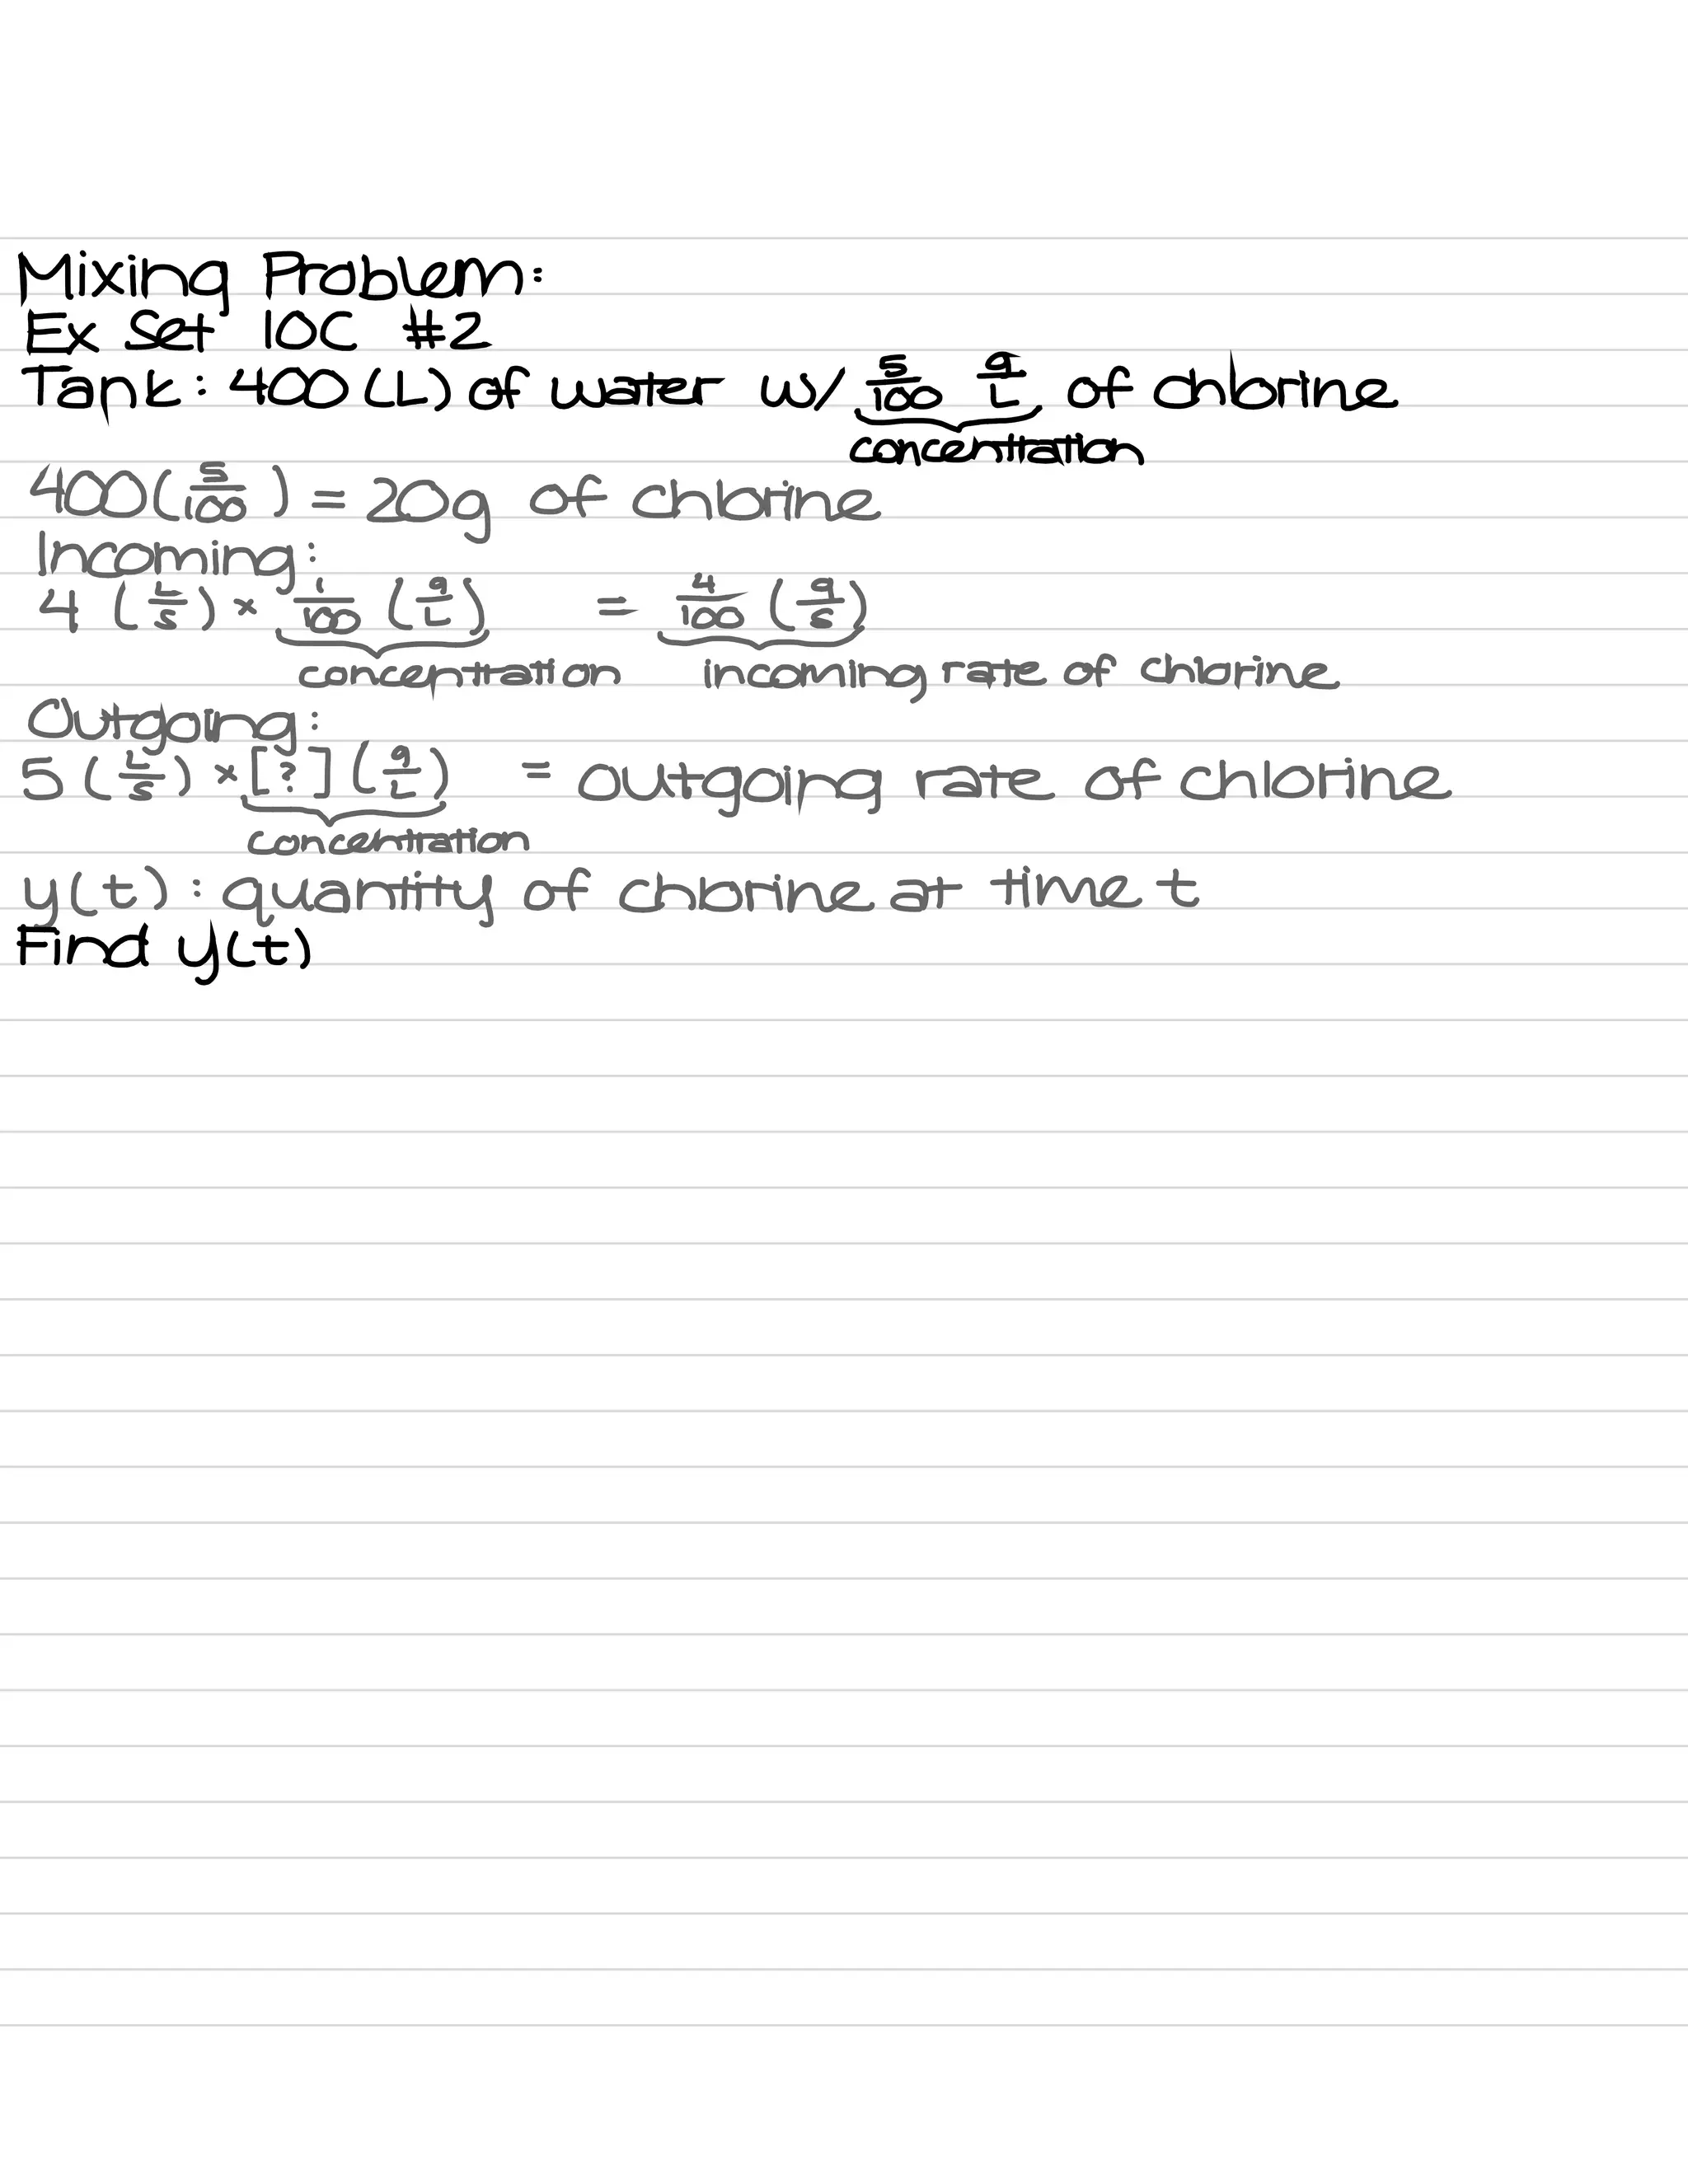 Mixing Problem:
Ex Set 10C #2
Tank: 400 (L) of water w/ 5/100 g/L of chlorine
concentration
400(5/100) = 20g of chlorine
Incoming:
4 (L/s) × 1/100 (g/L) = 4/100 (g/s)
concentration incoming rate of chlorine
Outgoing:
5 (L/s) × [?] (g/L) = outgoing rate of chlorine
concentration
y(t) : quantity of chlorine at time t
Find y(t)